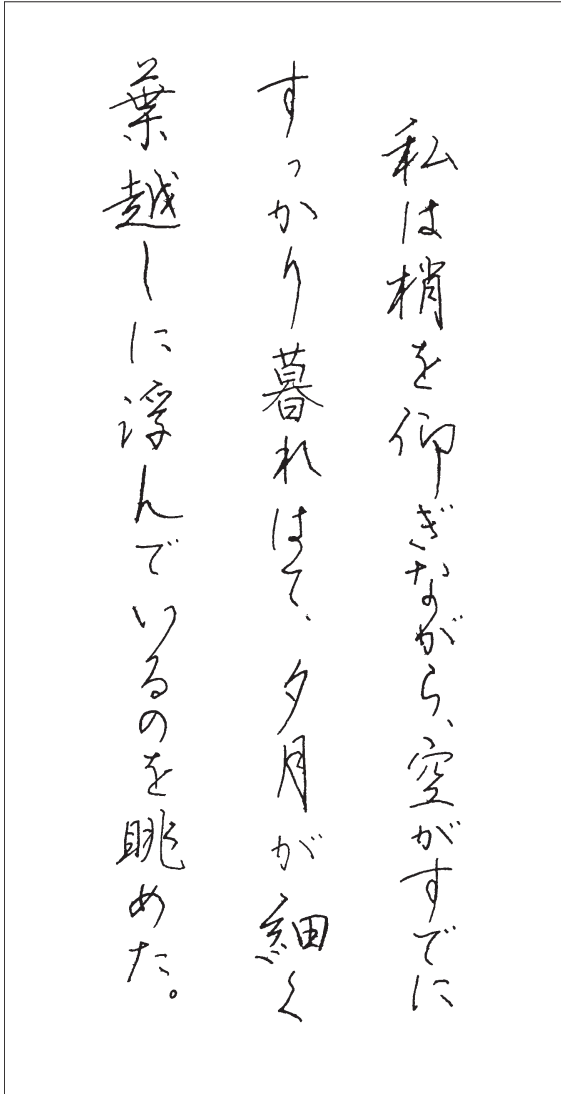 私は梢を仰ぎながら、空がすでに
すっかり暮れはて、夕月が細く
葉越しに浮んでいるのを眺めた。